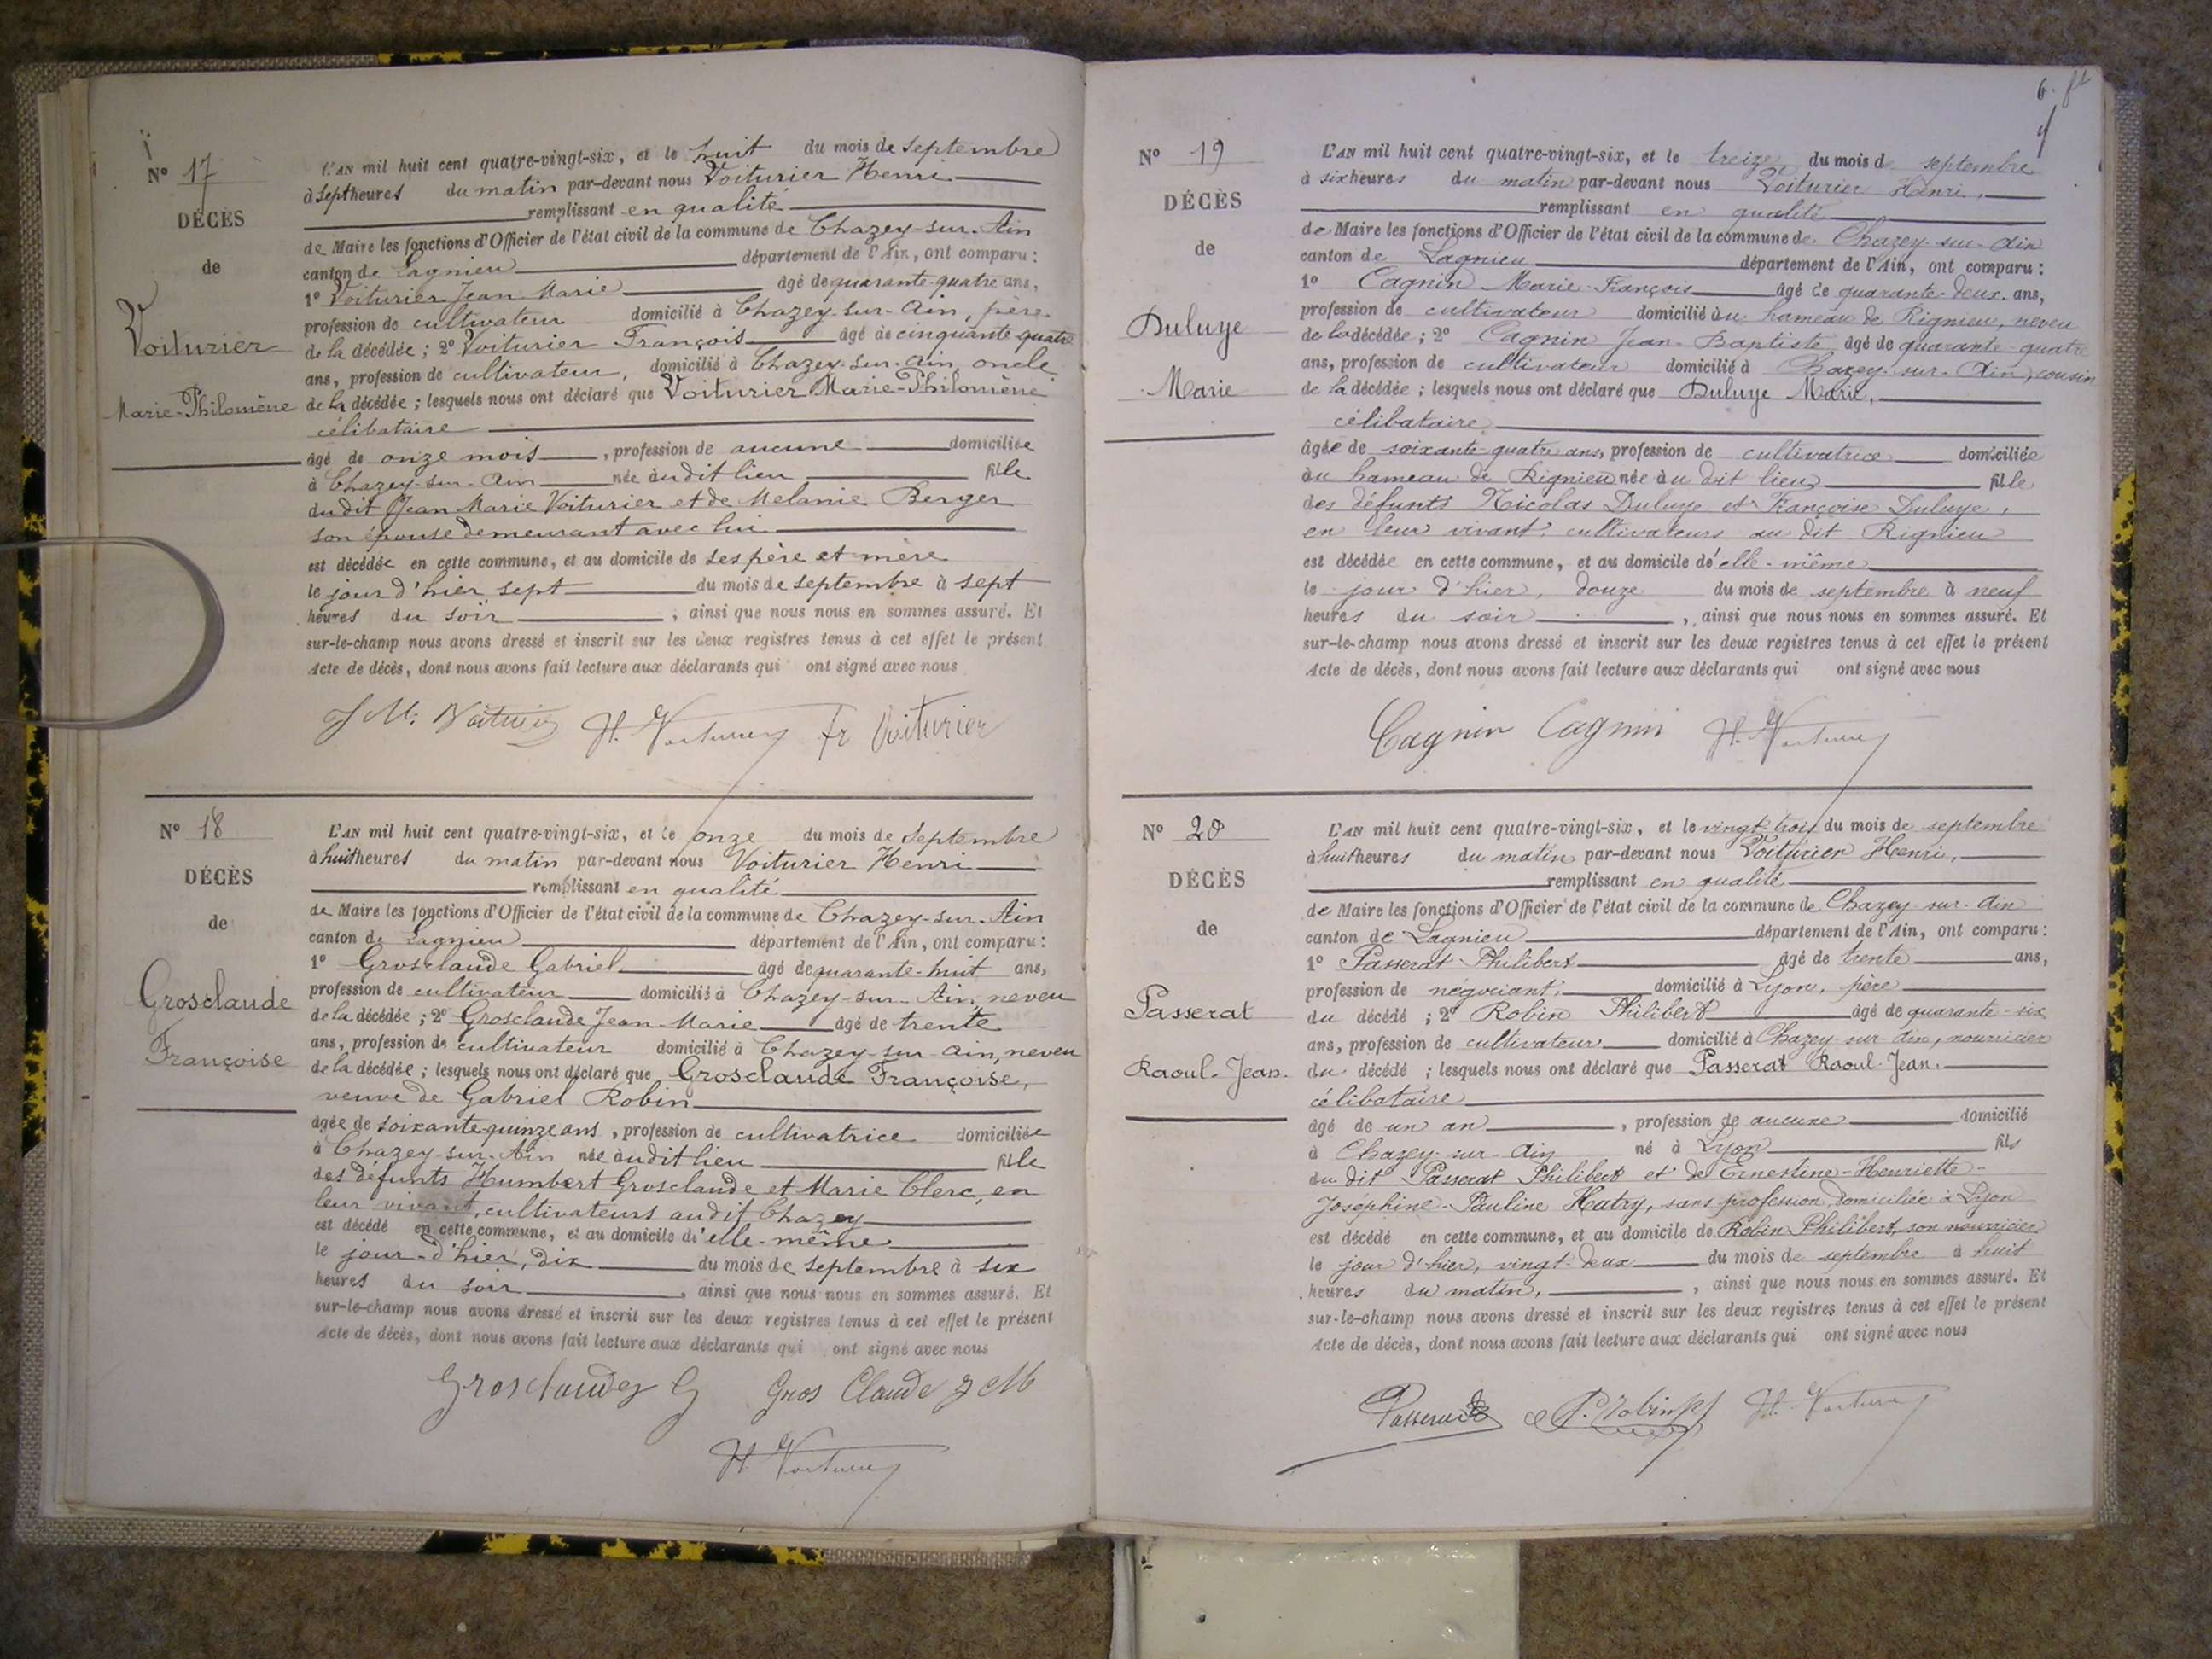 N° 17
DÉCÈS
de
Voiturier
Marie-Philomène
L'AN mil huit cent quatre-vingt-six, et le huit du mois de septembre
à sept heures du matin par-devant nous Voiturier Henri
remplissant en qualité
de Maire les fonctions d'Officier de l'état civil de la commune de Chazey-sur-Ain
canton de Lagnieu département de l'Ain, ont comparu :
1° Voiturier Jean Marie âgé de quarante-quatre ans,
profession de cultivateur domicilié à Chazey-sur-Ain, père
de la décédée ; 2° Voiturier François âgé de cinquante quatre
ans, profession de cultivateur, domicilié à Chazey-sur-Ain, oncle
de la décédée ; lesquels nous ont déclaré que Voiturier Marie-Philomène
célibataire
âgé de onze mois, profession de aucune domiciliée
à Chazey-sur-Ain née àudit lieu fille
du dit Jean Marie Voiturier et de Melanie Berger
son épouse demeurant avec lui
est décédée en cette commune, et au domicile de ses père et mère
le jour d'hier sept du mois de septembre à sept
heures du soir, ainsi que nous nous en sommes assuré. Et
sur-le-champ nous avons dressé et inscrit sur les deux registres tenus à cet effet le présent
Acte de décès, dont nous avons fait lecture aux déclarants qui ont signé avec nous
J M. Voiturier H. Voiturier Fr Voiturier
N° 18
DÉCÈS
de
Grosclaude
Françoise
L'AN mil huit cent quatre-vingt-six, et le onze du mois de septembre
à huit heures du matin par-devant nous Voiturier Henri
remplissant en qualité
de Maire les fonctions d'Officier de l'état civil de la commune de Chazey-sur-Ain
canton de Lagnieu département de l'Ain, ont comparu :
1° Grosclaude Gabriel âgé de quarante-huit ans,
profession de cultivateur domicilié à Chazey-sur-Ain, neveu
de la décédée ; 2° Grosclaude Jean Marie âgé de trente
ans, profession de cultivateur domicilié à Chazey-sur-Ain, neveu
de la décédée ; lesquels nous ont déclaré que Grosclaude Françoise,
veuve de Gabriel Robin
âgée de soixante quinze ans, profession de cultivatrice domiciliée
à Chazey-sur-Ain née àudit lieu fille
des défunts Humbert Grosclaude et Marie Clerc, en
leur vivant, cultivateurs audit Chazey
est décédé en cette commune, et au domicile d'elle-même
le jour-d'hier, dix du mois de septembre à six
heures du soir, ainsi que nous nous en sommes assuré. Et
sur-le-champ nous avons dressé et inscrit sur les deux registres tenus à cet effet le présent
Acte de décès, dont nous avons fait lecture aux déclarants qui ont signé avec nous
Grosclaude G Gros Claude J M
H. Voiturier
6.
N° 19
DÉCÈS
de
Duluye
Marie
L'AN mil huit cent quatre-vingt-six, et le treize du mois de septembre
à six heures du matin par-devant nous Voiturier Henri,
remplissant en qualité
de Maire les fonctions d'Officier de l'état civil de la commune de Chazey-sur-Ain
canton de Lagnieu département de l'Ain, ont comparu :
1° Cagnin Marie-François âgé de quarante-deux ans,
profession de cultivateur domicilié àu hameau de Rignieu, neveu
de la décédée ; 2° Cagnin Jean-Baptiste âgé de quarante-quatre
ans, profession de cultivateur domicilié à Chazey-sur-Ain, cousin
de la décédée ; lesquels nous ont déclaré que Duluye Marie,
célibataire
âgée de soixante-quatre ans, profession de cultivatrice domiciliée
àu hameau de Rignieu née àu dit lieu fille
des défunts Nicolas Duluye et Françoise Duluye,
en leur vivant cultivateurs au dit Rignieu
est décédée en cette commune, et au domicile d'elle-même
le jour d'hier, douze du mois de septembre à neuf
heures du soir, ainsi que nous nous en sommes assuré. Et
sur-le-champ nous avons dressé et inscrit sur les deux registres tenus à cet effet le présent
Acte de décès, dont nous avons fait lecture aux déclarants qui ont signé avec nous
Cagnin Cagnin H. Voiturier
N° 20
DÉCÈS
de
Passerat
Raoul-Jean.
L'AN mil huit cent quatre-vingt-six, et le vingt-trois du mois de septembre
à huit heures du matin par-devant nous Voiturier Henri,
remplissant en qualité
de Maire les fonctions d'Officier de l'état civil de la commune de Chazey-sur-Ain
canton de Lagnieu département de l'Ain, ont comparu :
1° Passerat Philibert âgé de trente ans,
profession de négociant, domicilié à Lyon, père
du décédé ; 2° Robin Philibert âgé de quarante-six
ans, profession de cultivateur domicilié à Chazey-sur-Ain, nourricier
du décédé ; lesquels nous ont déclaré que Passerat Raoul-Jean.
célibataire
âgé de un an, profession de aucune domicilié
à Chazey-sur-Ain né à Lyon fils
du dit Passerat Philibert et de Ernestine-Henriette-
Joséphine-Pauline Hutry, sans profession, domiciliée à Lyon
est décédé en cette commune, et au domicile de Robin Philibert, son nourricier
le jour d'hier, vingt-deux du mois de septembre à huit
heures du matin, ainsi que nous nous en sommes assuré. Et
sur-le-champ nous avons dressé et inscrit sur les deux registres tenus à cet effet le présent
Acte de décès, dont nous avons fait lecture aux déclarants qui ont signé avec nous
Passerat P. Robin H. Voiturier